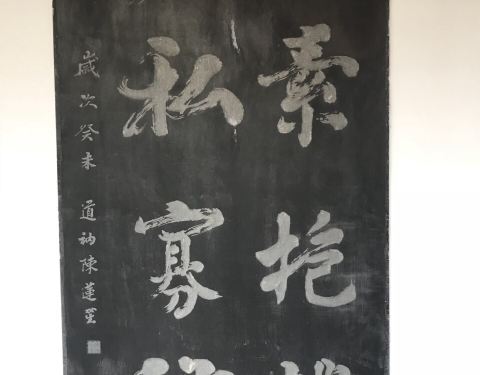 素抱
私寡
歲次癸未 道衲陳蓮笙